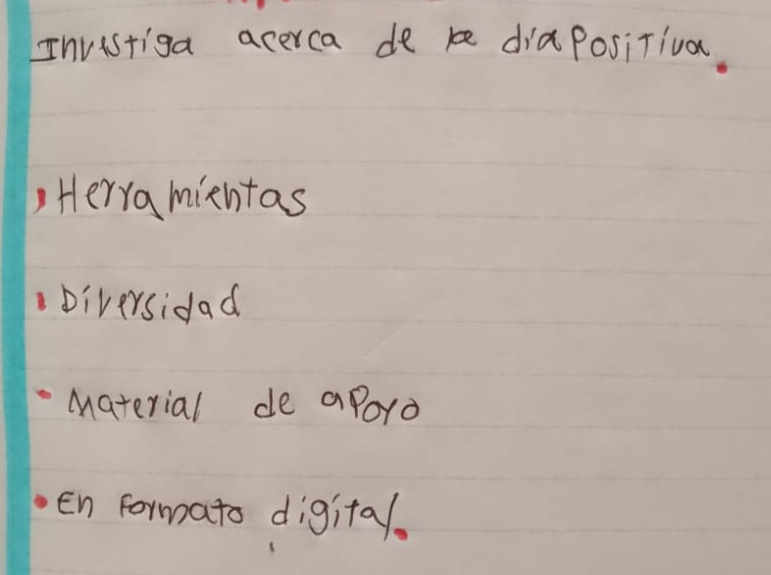 Investiga acerca de la diapositiva.
Herramientas
Diversidad
Material de apoyo
En formato digital.